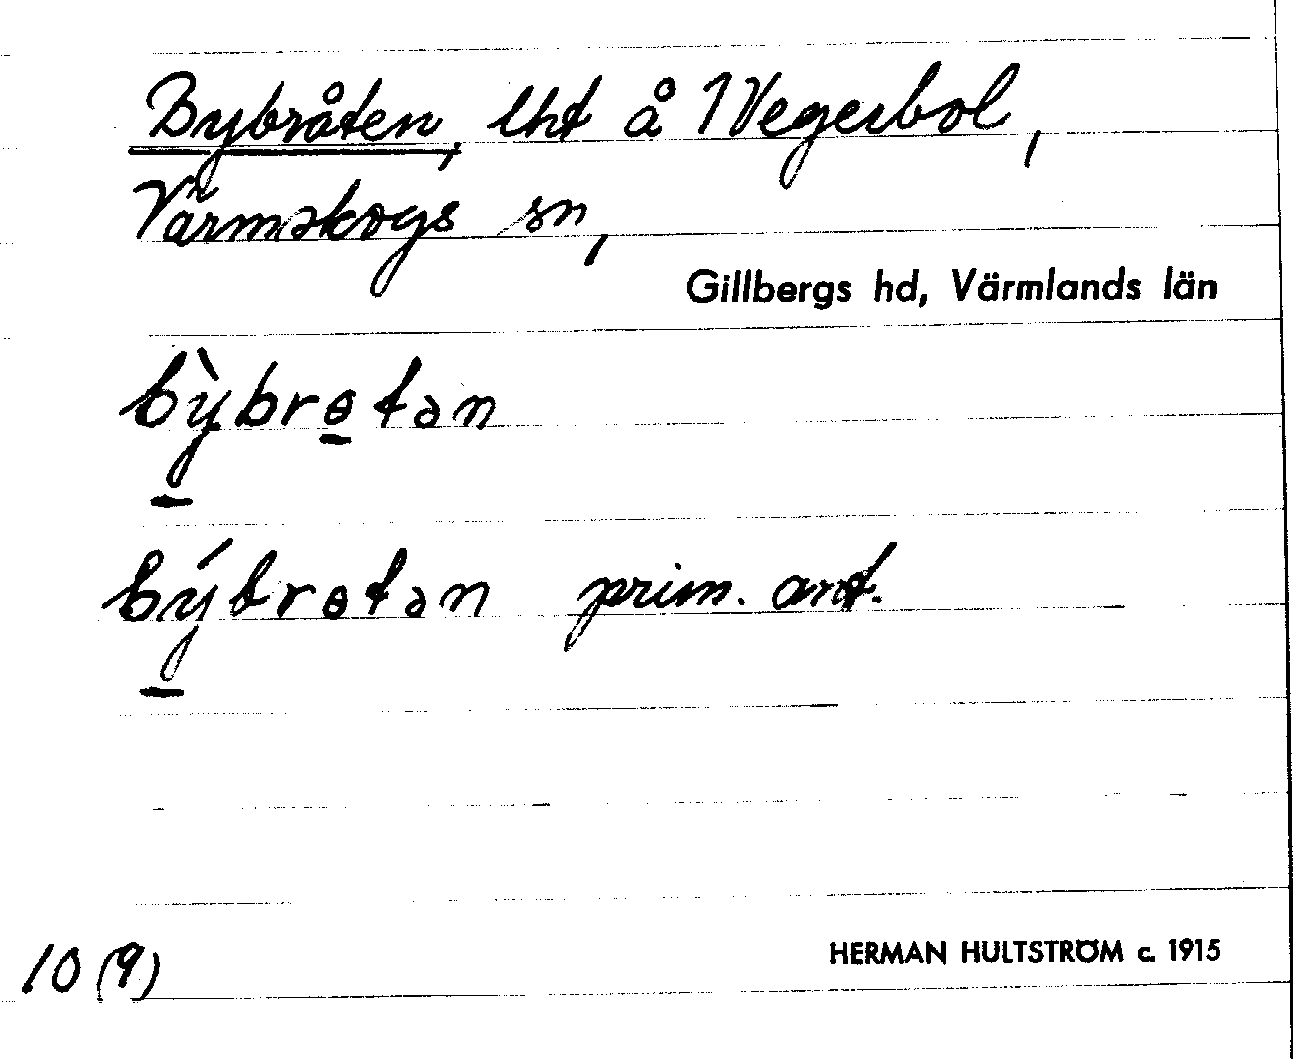 Bybråten, lht å Wegerbol,
Värmskogs sn,
Gillbergs hd, Värmlands län
bỳbrɵtən
býbrɵtən prim. ant.
10 (9)
HERMAN HULTSTRÖM c. 1915